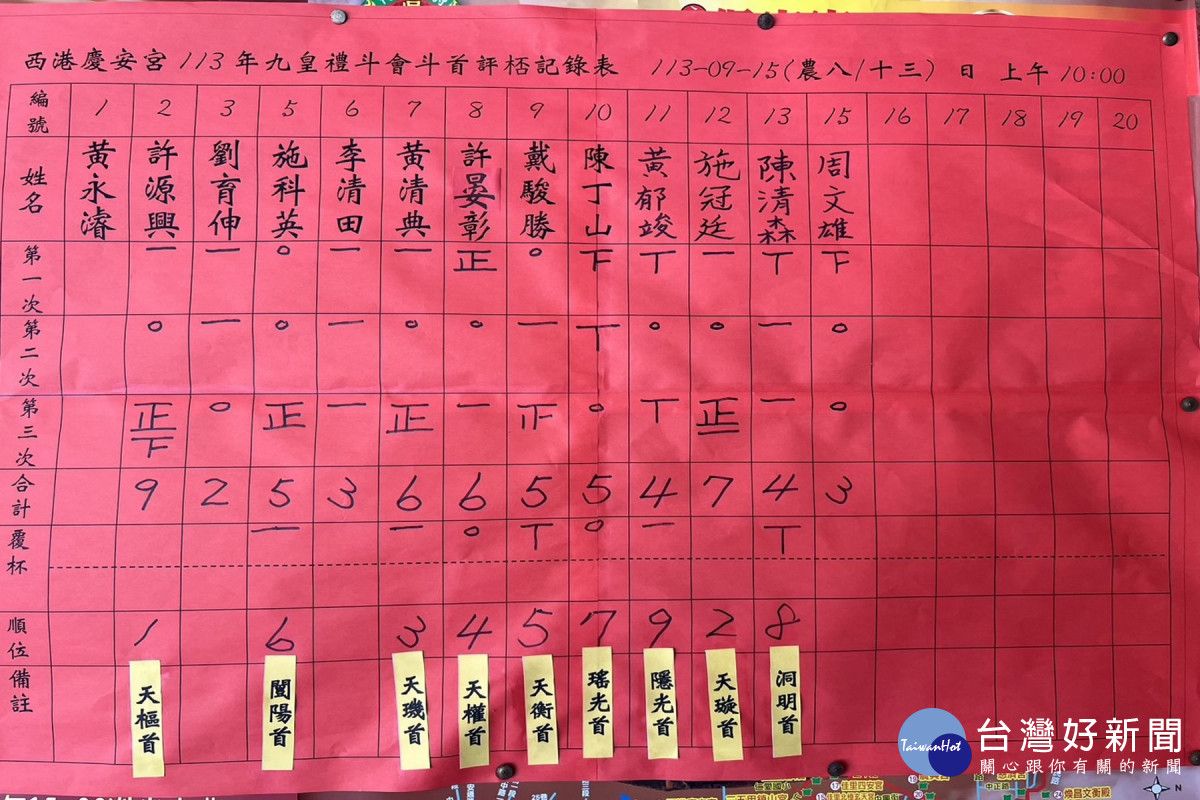 西港慶安宮 113 年九皇禮斗會斗首評桮記錄表 113-09-15(農八/十三) 日 上午 10:00
編號 1 2 3 5 6 7 8 9 10 11 12 13 15 16 17 18 19 20
姓名 黃永濬 許源興 劉育伸 施科英 李清田 黃清典 許晏彰 戴駿勝 陳丁山 黃郁竣 施冠廷 陳清森 周文雄
第一次 一 一 ○ 一 一 正 ○ 下 丅 一 丅 下
第二次 ○ 一 ○ 一 ○ ○ 一 丅 ○ ○ 一 ○
第三次 正下 ○ 正 一 正一 一 ○ 丅 正丅 一 ○
合計 9 2 5 3 6 6 5 5 4 7 4 3
覆杯 一 一 ○ 丅 ○ 一 丅
順位 1 6 3 4 5 7 9 2 8
備註 天樞首 闓陽首 天璣首 天權首 天衡首 瑤光首 隱光首 天璇首 洞明首
TaiwanHot 台灣好新聞
關心跟你有關的新聞